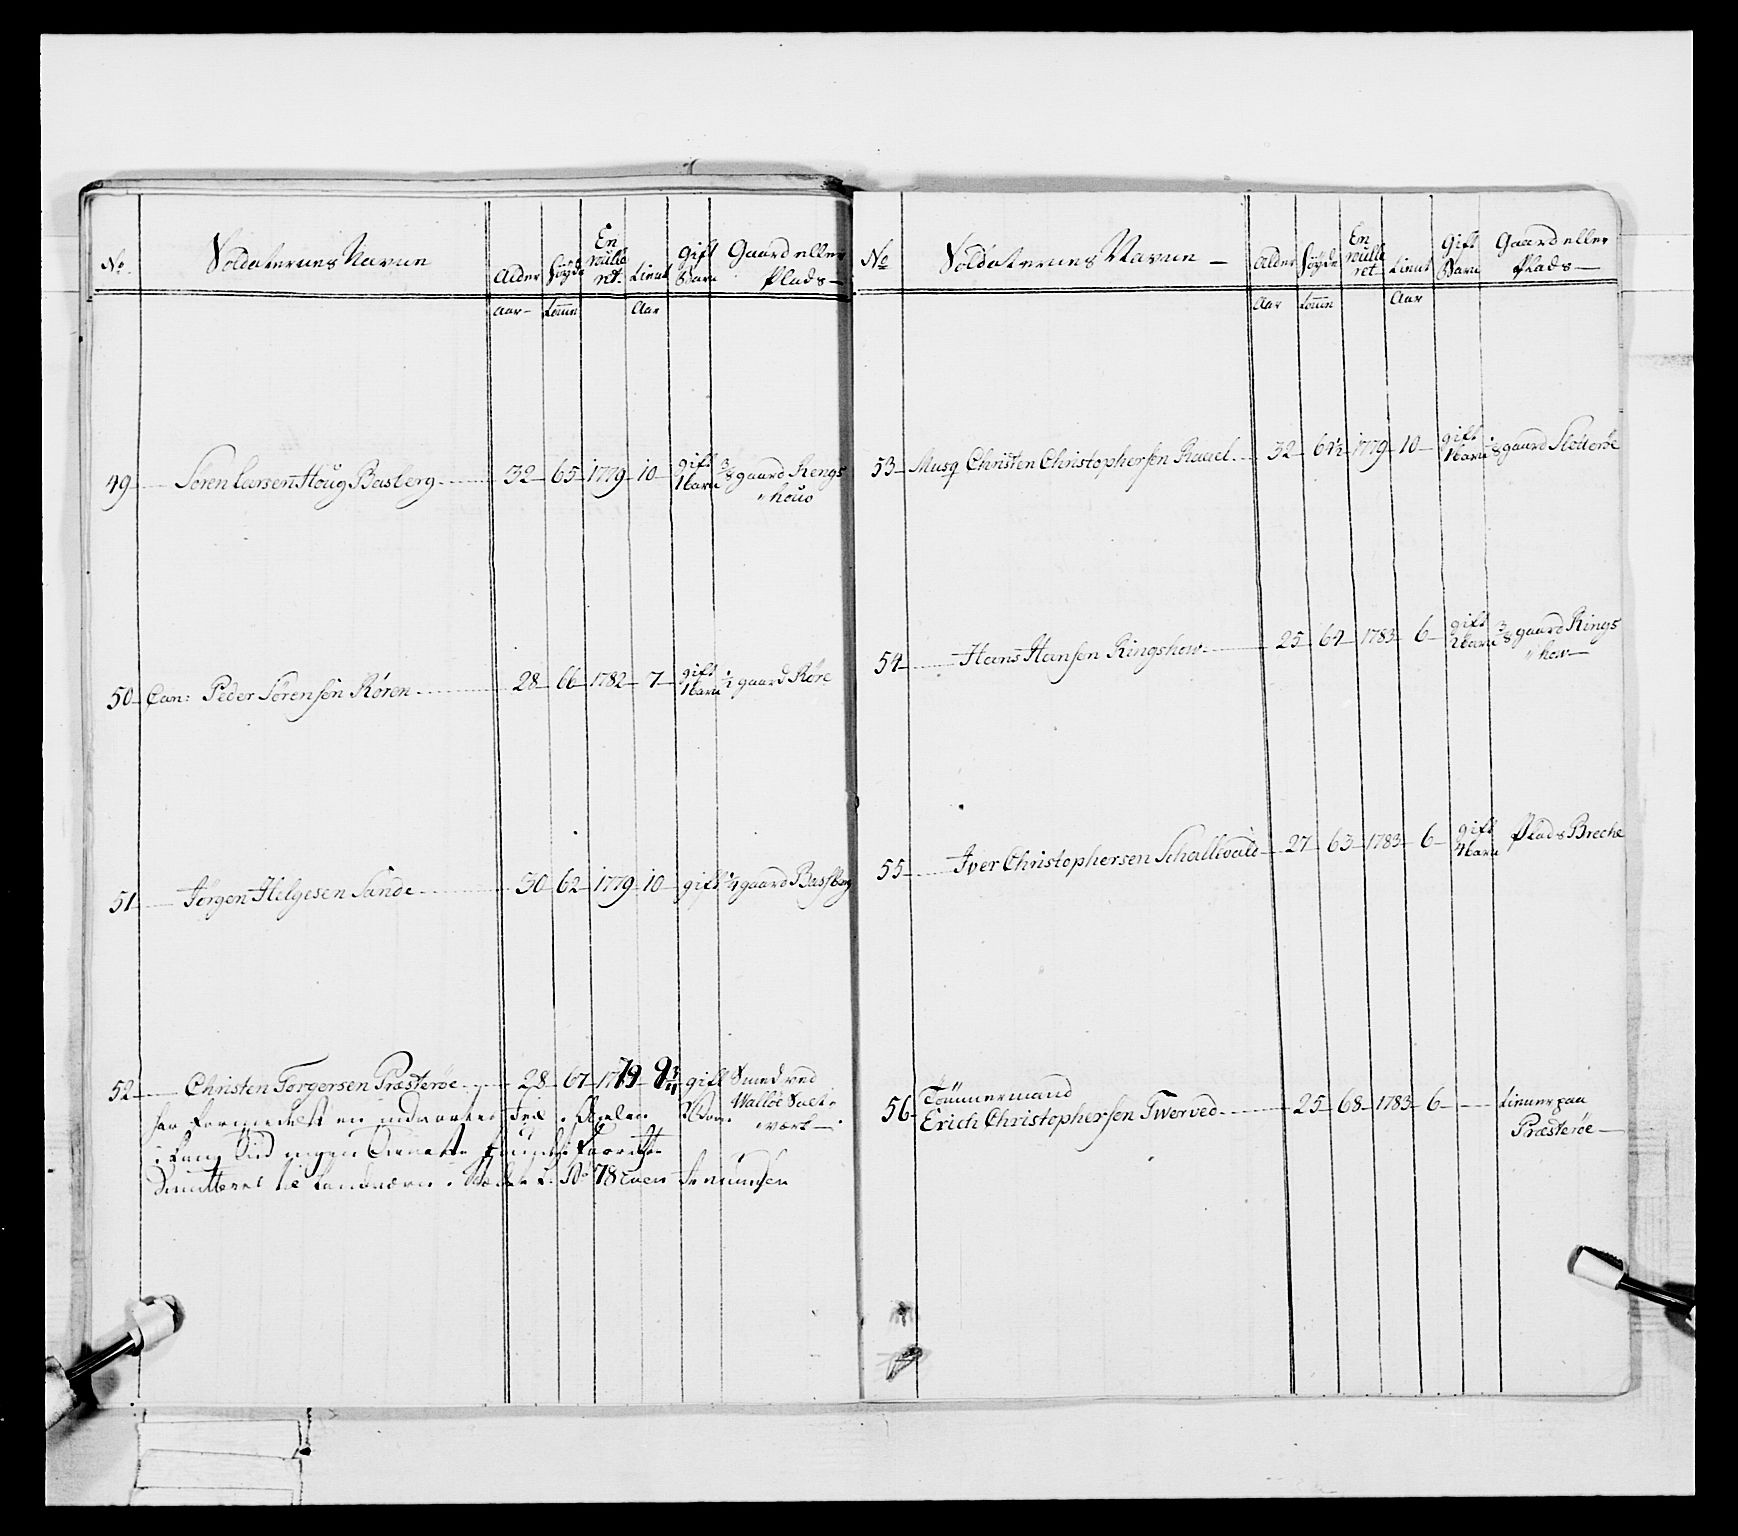 No Soldaternes Navne Alder Høyde En roulle ret. tient Gift Barn Gaard eller Plads
Aar Tomm Aar
49 Søren Larsen Houg Basberg 32 65 1779 10 gift 1 barn 3/8 gaard Rengs
houo
50 Can: Peder Sørensen Røren 28 66 1782 7 gift 1 barn gaard Røre
51 Jørgen Helgesen Sande 30 62 1779 10 gift 1/4 gaard Basberg
52 Christen Torgersen Præsterøe 28 67 1779 9 gift Smed ved
har formedelst en Walløe Salt
værk
i lang Tid ingen
No 78 Even Amundsen
No Soldaternes Navne Alder Høyde En roulle ret tient Gift Barn Gaard eller Plads
Aar Tomm Aar
53 Musq Christen Christophersen Raael 32 64½ 1779 10 gift 1 barn gaard Slotterøe
54 Hans Hansen Ringshow 25 64 1783 6 gift 2 barn 3/8 gaard Rings
how
55 Iver Christophersen Schallevald 27 63 1783 6 gift barn Plads Breche
56 Tömmermand
Erich Christophersen Twerved 25 68 1783 6 tienner paa
Præsterøe